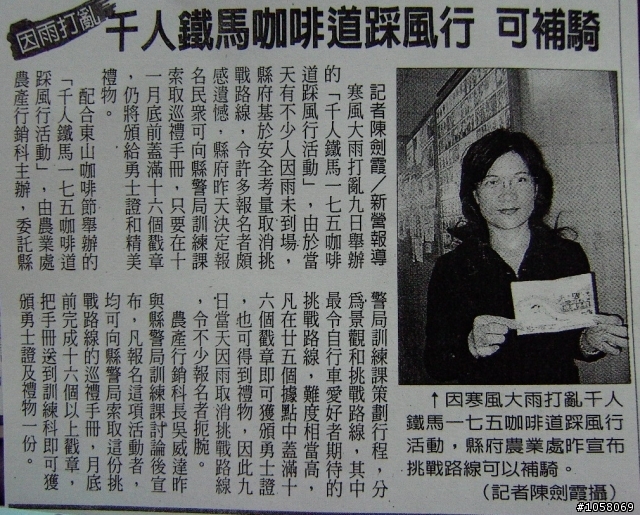 因雨打亂
千人鐵馬咖啡道踩風行 可補騎
記者陳劍霞／新營報導
寒風大雨打亂九日舉辦
的「千人鐵馬一七五咖啡
道踩風行活動」，由於當
天有不少人因雨未到場，
縣府基於安全考量取消挑
戰路線，令許多報名者頗
感遺憾，縣府昨天決定報
名民眾可向縣警局訓練課
索取巡禮手冊，只要在十
一月底前蓋滿十六個戳章
，仍將頒給勇士證和精美
禮物。
配合東山咖啡節舉辦的
「千人鐵馬一七五咖啡道
踩風行活動」，由農業處
農產行銷科主辦，委託縣
警局訓練課策劃行程，分
為景觀和挑戰路線，其中
最令自行車愛好者期待的
挑戰路線，難度相當高，
凡在廿五個據點中蓋滿十
六個戳章即可獲頒勇士證
，也可得到禮物，因此九
日當天因雨取消挑戰路線
，令不少報名者扼腕。
農產行銷科長吳威達昨
與縣警局訓練課討論後宣
布，凡報名這項活動者，
均可向縣警局索取這份挑
戰路線的巡禮手冊，月底
前完成十六個以上戳章，
把手冊送到訓練科即可獲
頒勇士證及禮物一份。
↑因寒風大雨打亂千人
鐵馬一七五咖啡道踩風行
活動，縣府農業處昨宣布
挑戰路線可以補騎。
（記者陳劍霞攝）
#1058069